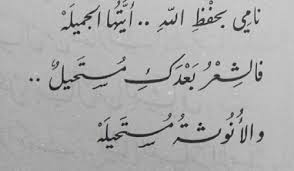 نامي بحفظِ اللهِ .. أيَّتُها الجميلَهْ
فالشِعْرُ بَعْدَكِ مُسْتَحيلٌ ..
والأُنُوثَةُ مُسْتَحيلَهْ